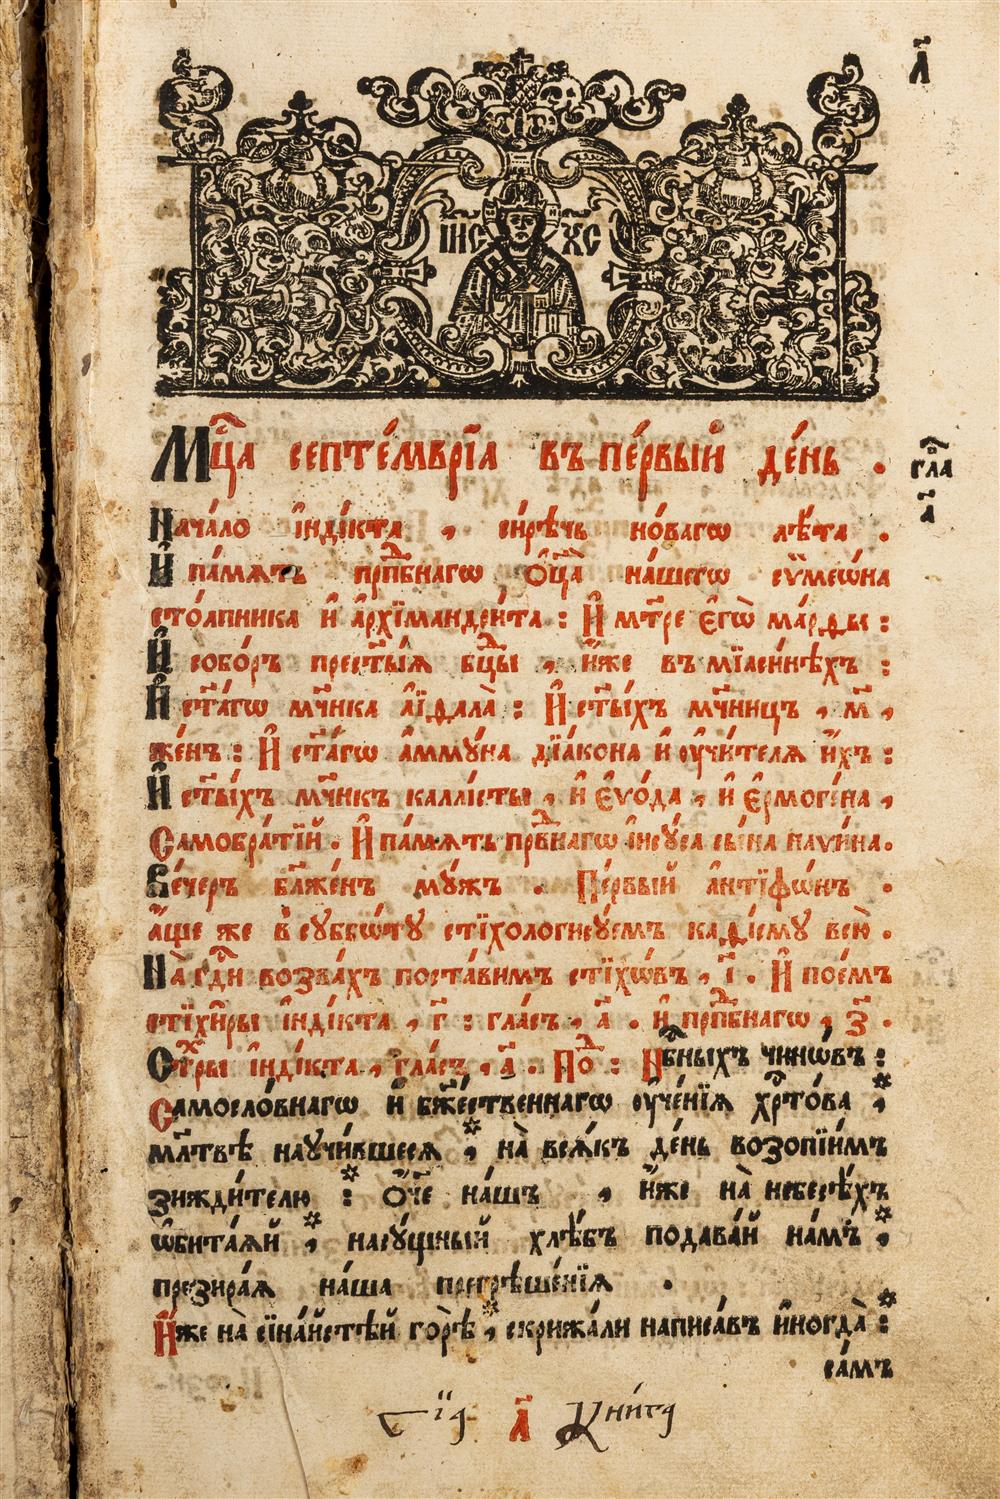 л҃
І҆И҃С Х҃С
Мц҃а септе́мврїа въ пе́рвый де́нь .
гла҃
а҃
Нача́ло і҆нді́кта , си́рѣчь но́вагѡ лѣ́та .
И҆ па́мѧть прпⷣбнагѡ ѻ҆ц҃а̀ на́шегѡ сѷмеѡ́на
сто́лпника и҆ а҆рхїмандри́та : И҆ мт҃ре є҆гѡ̀ ма́рѳы :
И҆ собо́ръ прест҃ы́ѧ бцⷣы , и҆́же въ мїасі́нѣхъ :
И҆ ст҃а́гѡ мч҃нка а҆іѳала̀ : И҆ ст҃ы́хъ мч҃ницъ , м҃ ,
же́нъ : И҆ ст҃а́гѡ а҆ммꙋ́на дїа́кона и҆ ᲂу҆чи́телѧ и҆́хъ :
И҆ ст҃ы́хъ мч҃нкъ каллі́сты , и҆ є҆ѵо́да , и҆ є҆рмоге́на ,
Самобра́тїй . И҆ па́мѧть прⷣбнагѡ і҆исꙋ́са сы́на наѵи́на .
Ве́черъ бл҃же́нъ мꙋ́жъ . Пе́рвый а҆нтїфѡ́нъ .
а҆́ще же в сꙋббѡ́тꙋ стїхологисꙋ́емъ каѳі́смꙋ всю̀ .
На̀ гдⷭ҇и возва́хъ поста́вимъ стїхѡ́въ , і҃ . И҆ пое́мъ
стїхи̑ры і҆нді́кта , г҃ : гла́съ , а҃ . и҆ прпⷣбнагѡ , з҃ .
Стхⷬ҇ры і҆нді́кта , гла́съ , а҃ . Поⷣ : Нб҃ныхъ чинѡ́въ :
Самосло́внагѡ и҆ бж҃е́ственнагѡ ᲂу҆че́нїѧ хрⷭ҇то́ва *,
мл҃твѣ наꙋчи́вшеесѧ *, на̀ всѧ́къ де́нь возопїи́мъ
зижди́телю *: ѻ҆́ч҃е на́шъ , и҆́же на̀ небесѣ́хъ
ѡ҆бита́ѧй *, насꙋ́щный хлѣ́бъ подава́й на́мъ *,
презира́ѧ на́ша прегрѣше́нїѧ .
И҆́же на̀ сїна́йстѣй го́рѣ *, скрижа́ли написа́въ и҆ногда̀ *:
са́мъ
л҃
Сїѧ Кни́га